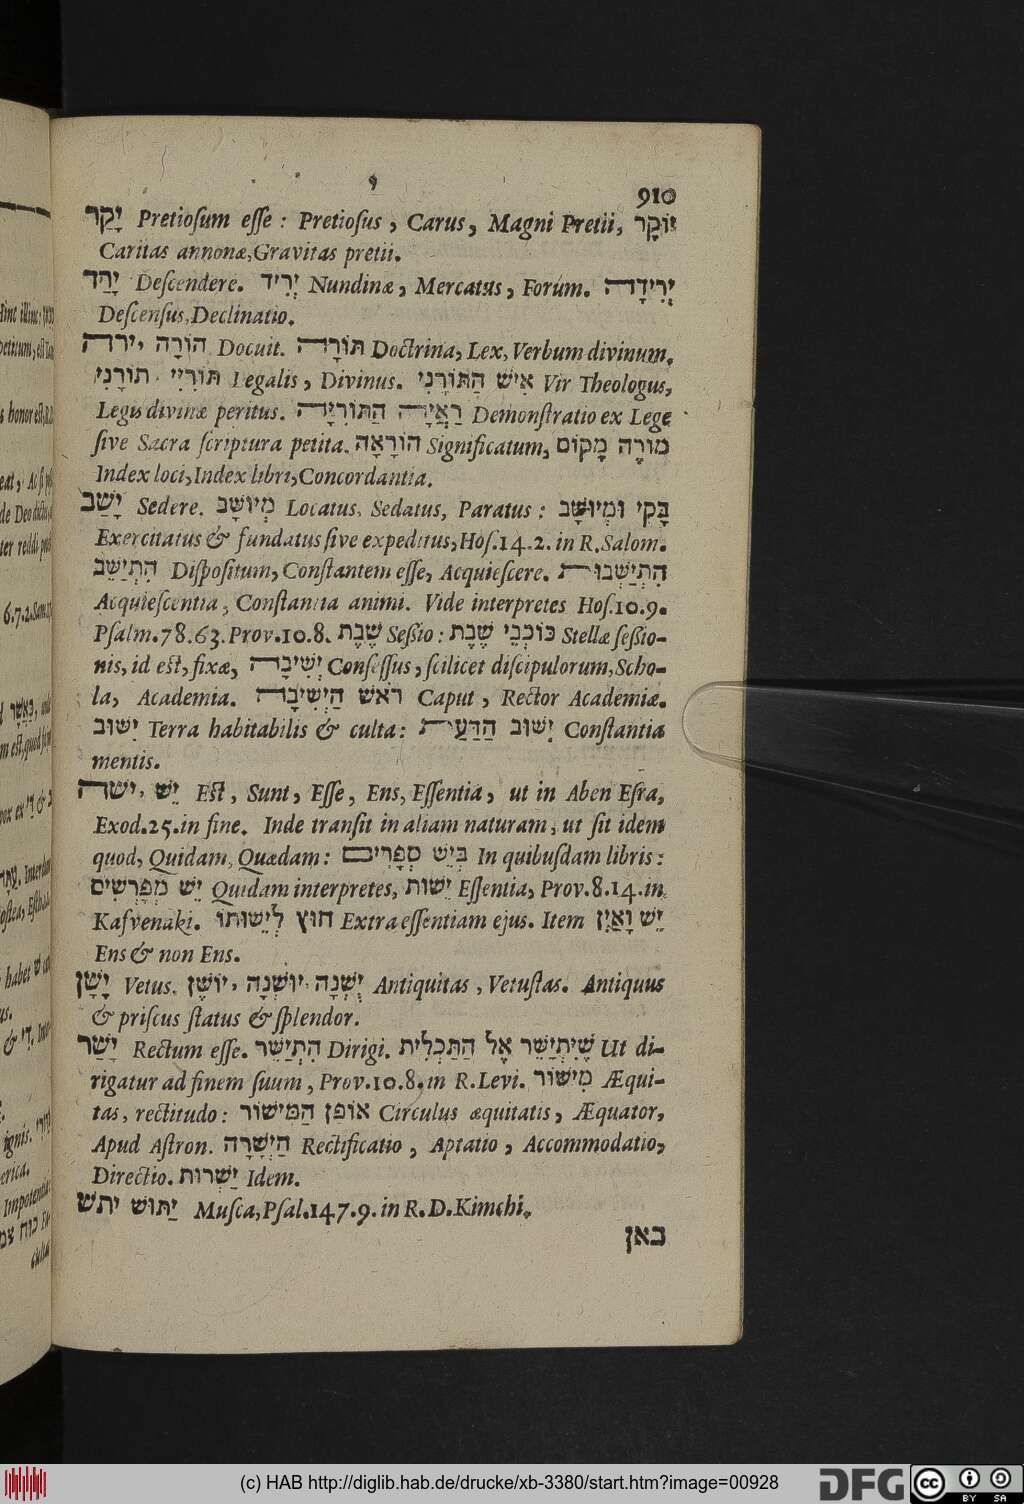 י
910
יָקַר Pretioſum eſſe : Pretioſus , Carus, Magni Pretii, יוֹקֶר
Caritas annonæ, Gravitas pretii.
יָרַד Deſcendere. יְרִיד Nundinæ, Mercatus, Forum. יְרִידָה
Deſcenſus, Declinatio.
ירה, הוֹרָה Docuit. תּוֹרָה Doctrina, Lex, Verbum divinum,
תּוֹרִיִּי תורָנִי Legalis, Divinus. אִישׁ הַתּוֹרָנִי Vir Theologus,
Legis divinæ peritus. רַאֲיָה הַתּוֹרִיָּה Demonſtratio ex Lege
ſive Sacra ſcriptura petita. הוֹרָאָה Significatum, מוּרֶה מָקוֹם
Index loci, Index libri, Concordantia.
יָשַׁב Sedere. מְיוּשָּׁב Locatus, Sedatus, Paratus : בָּקִי וּמְיוּשָּׁב
Exercitatus & fundatus ſive expeditus, Hoſ.14.2. in R. Salom.
הִתְיַשֵּׁב Diſpoſitum, Conſtantem eſſe, Acquieſcere. הִתְיַשְּׁבוּת
Acquieſcentia, Conſtantia animi. Vide interpretes Hoſ.10.9.
Pſalm.78.63. Prov.10.8. שֶׁבֶת Seßio : כּוֹכְבֵי שֶׁבֶת Stellæ ſeßio-
nis, id eſt, fixæ, יְשִׁיבָה Conſeſſus, ſcilicet diſcipulorum, Scho-
la, Academia. רֹאשׁ הַיְשִׁיבָה Caput, Rector Academiæ.
יִשּׁוּב Terra habitabilis & culta : יִשּׁוּב הַדַּעַת Conſtantia
mentis.
ישה, יֵשׁ Eſt, Sunt, Eſſe, Ens, Eſſentia, ut in Aben Eſra,
Exod.25. in fine. Inde tranſit in aliam naturam, ut ſit idem
quod, Quidam, Quædam : בְּיֵשׁ סְפָרִים In quibuſdam libris :
יֵשׁ מְפָרְשִׁים Quidam interpretes, יֵשׁוּת Eſſentia, Prov.8.14. in
Kaſvenaki. חוּץ לְיֵשׁוּתוֹ Extra eſſentiam ejus. Item יֵשׁ וָאַיִן
Ens & non Ens.
יָשָׁן Vetus. יְשְׁנָה יוּשְׁנָה, יוֹשֶׁן Antiquitas, Vetuſtas. Antiquus
& priſcus ſtatus & ſplendor.
יָשַׁר Rectum eſſe. הִתְיַשֵּׁר Dirigi. שֶׁיִּתְיַשֵּׁר אֶל הַתַּכְלִית Ut di-
rigatur ad finem ſuum, Prov.10.8. in R. Levi. מִישׁוֹר Æqui-
tas, rectitudo : אוֹפַן הַמִּישׁוֹר Circulus æquitatis, Æquator,
Apud Aſtron. הַיְשָׁרָה Rectificatio, Aptatio, Accommodatio,
Directio. יַשְׁרוּת Idem.
יתש יַתּוּשׁ Muſca, Pſal.147.9. in R. D. Kimchi.
כאן
(c) HAB http://diglib.hab.de/drucke/xb-3380/start.htm?image=00928
DFG
cc BY SA